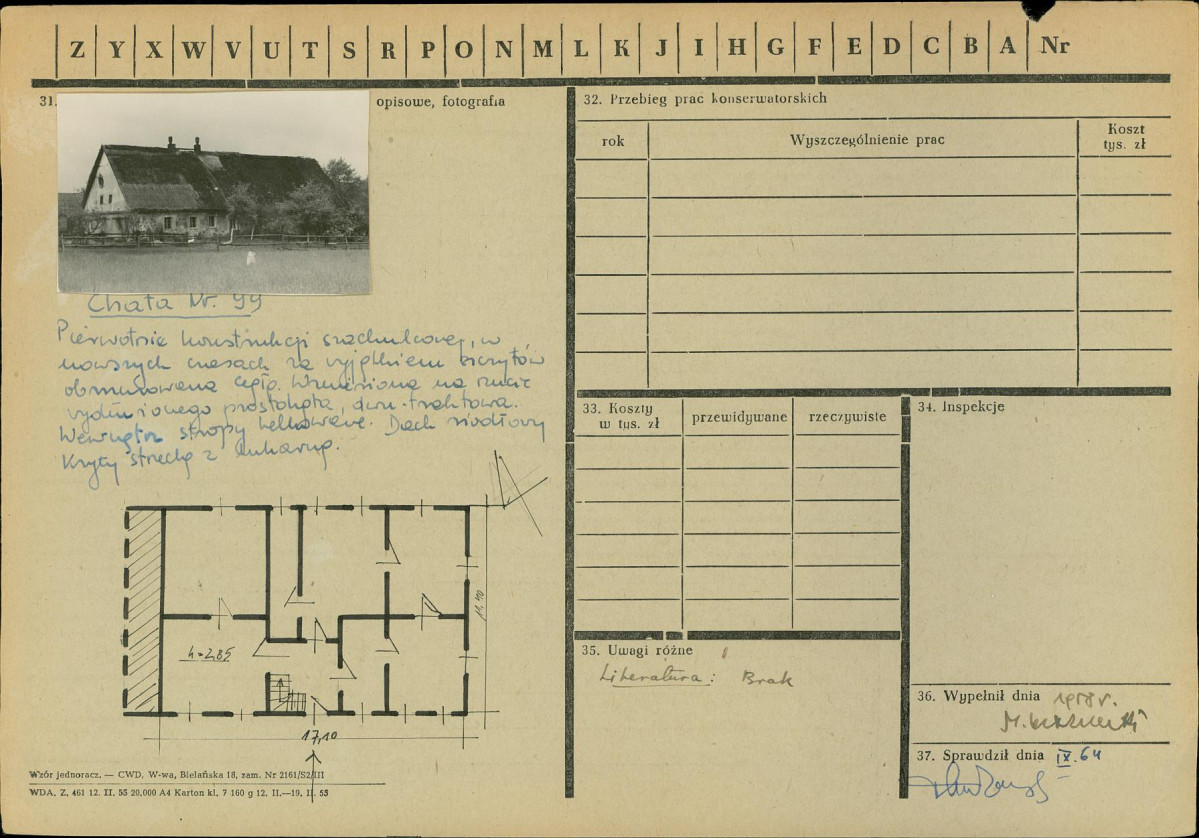 Z Y X W V U T S R P O N M L K J I H G F E D C B A Nr
31. opisowe, fotografia
Chata Nr. 99
Pierwotnie konstrukcji szachulcowej, w
nowszych czasach za wyjątkiem szczytów
obmurowana cegłą. Wzniesiona na rzucie
wydłużonego prostokąta, dwu-traktowa.
Wewnątrz stropy belkowane. Dach siodłowy
Kryty strzechą z
h=2,85
11.40
17,10
Wzór jednoracz. — CWD, W-wa, Bielańska 18, zam. Nr 2161/S2/III
WDA. Z. 461 12. II. 55 20.000 A4 Karton kl. 7 160 g 12. II.—19. II. 55
32. Przebieg prac konserwatorskich
rok
Wyszczególnienie prac
Koszt
tys. zł
33. Koszty
w tys. zł
przewidywane
rzeczywiste
34. Inspekcje
35. Uwagi różne
Literatura: Brak
36. Wypełnił dnia 1958 r.
37. Sprawdził dnia IX.64